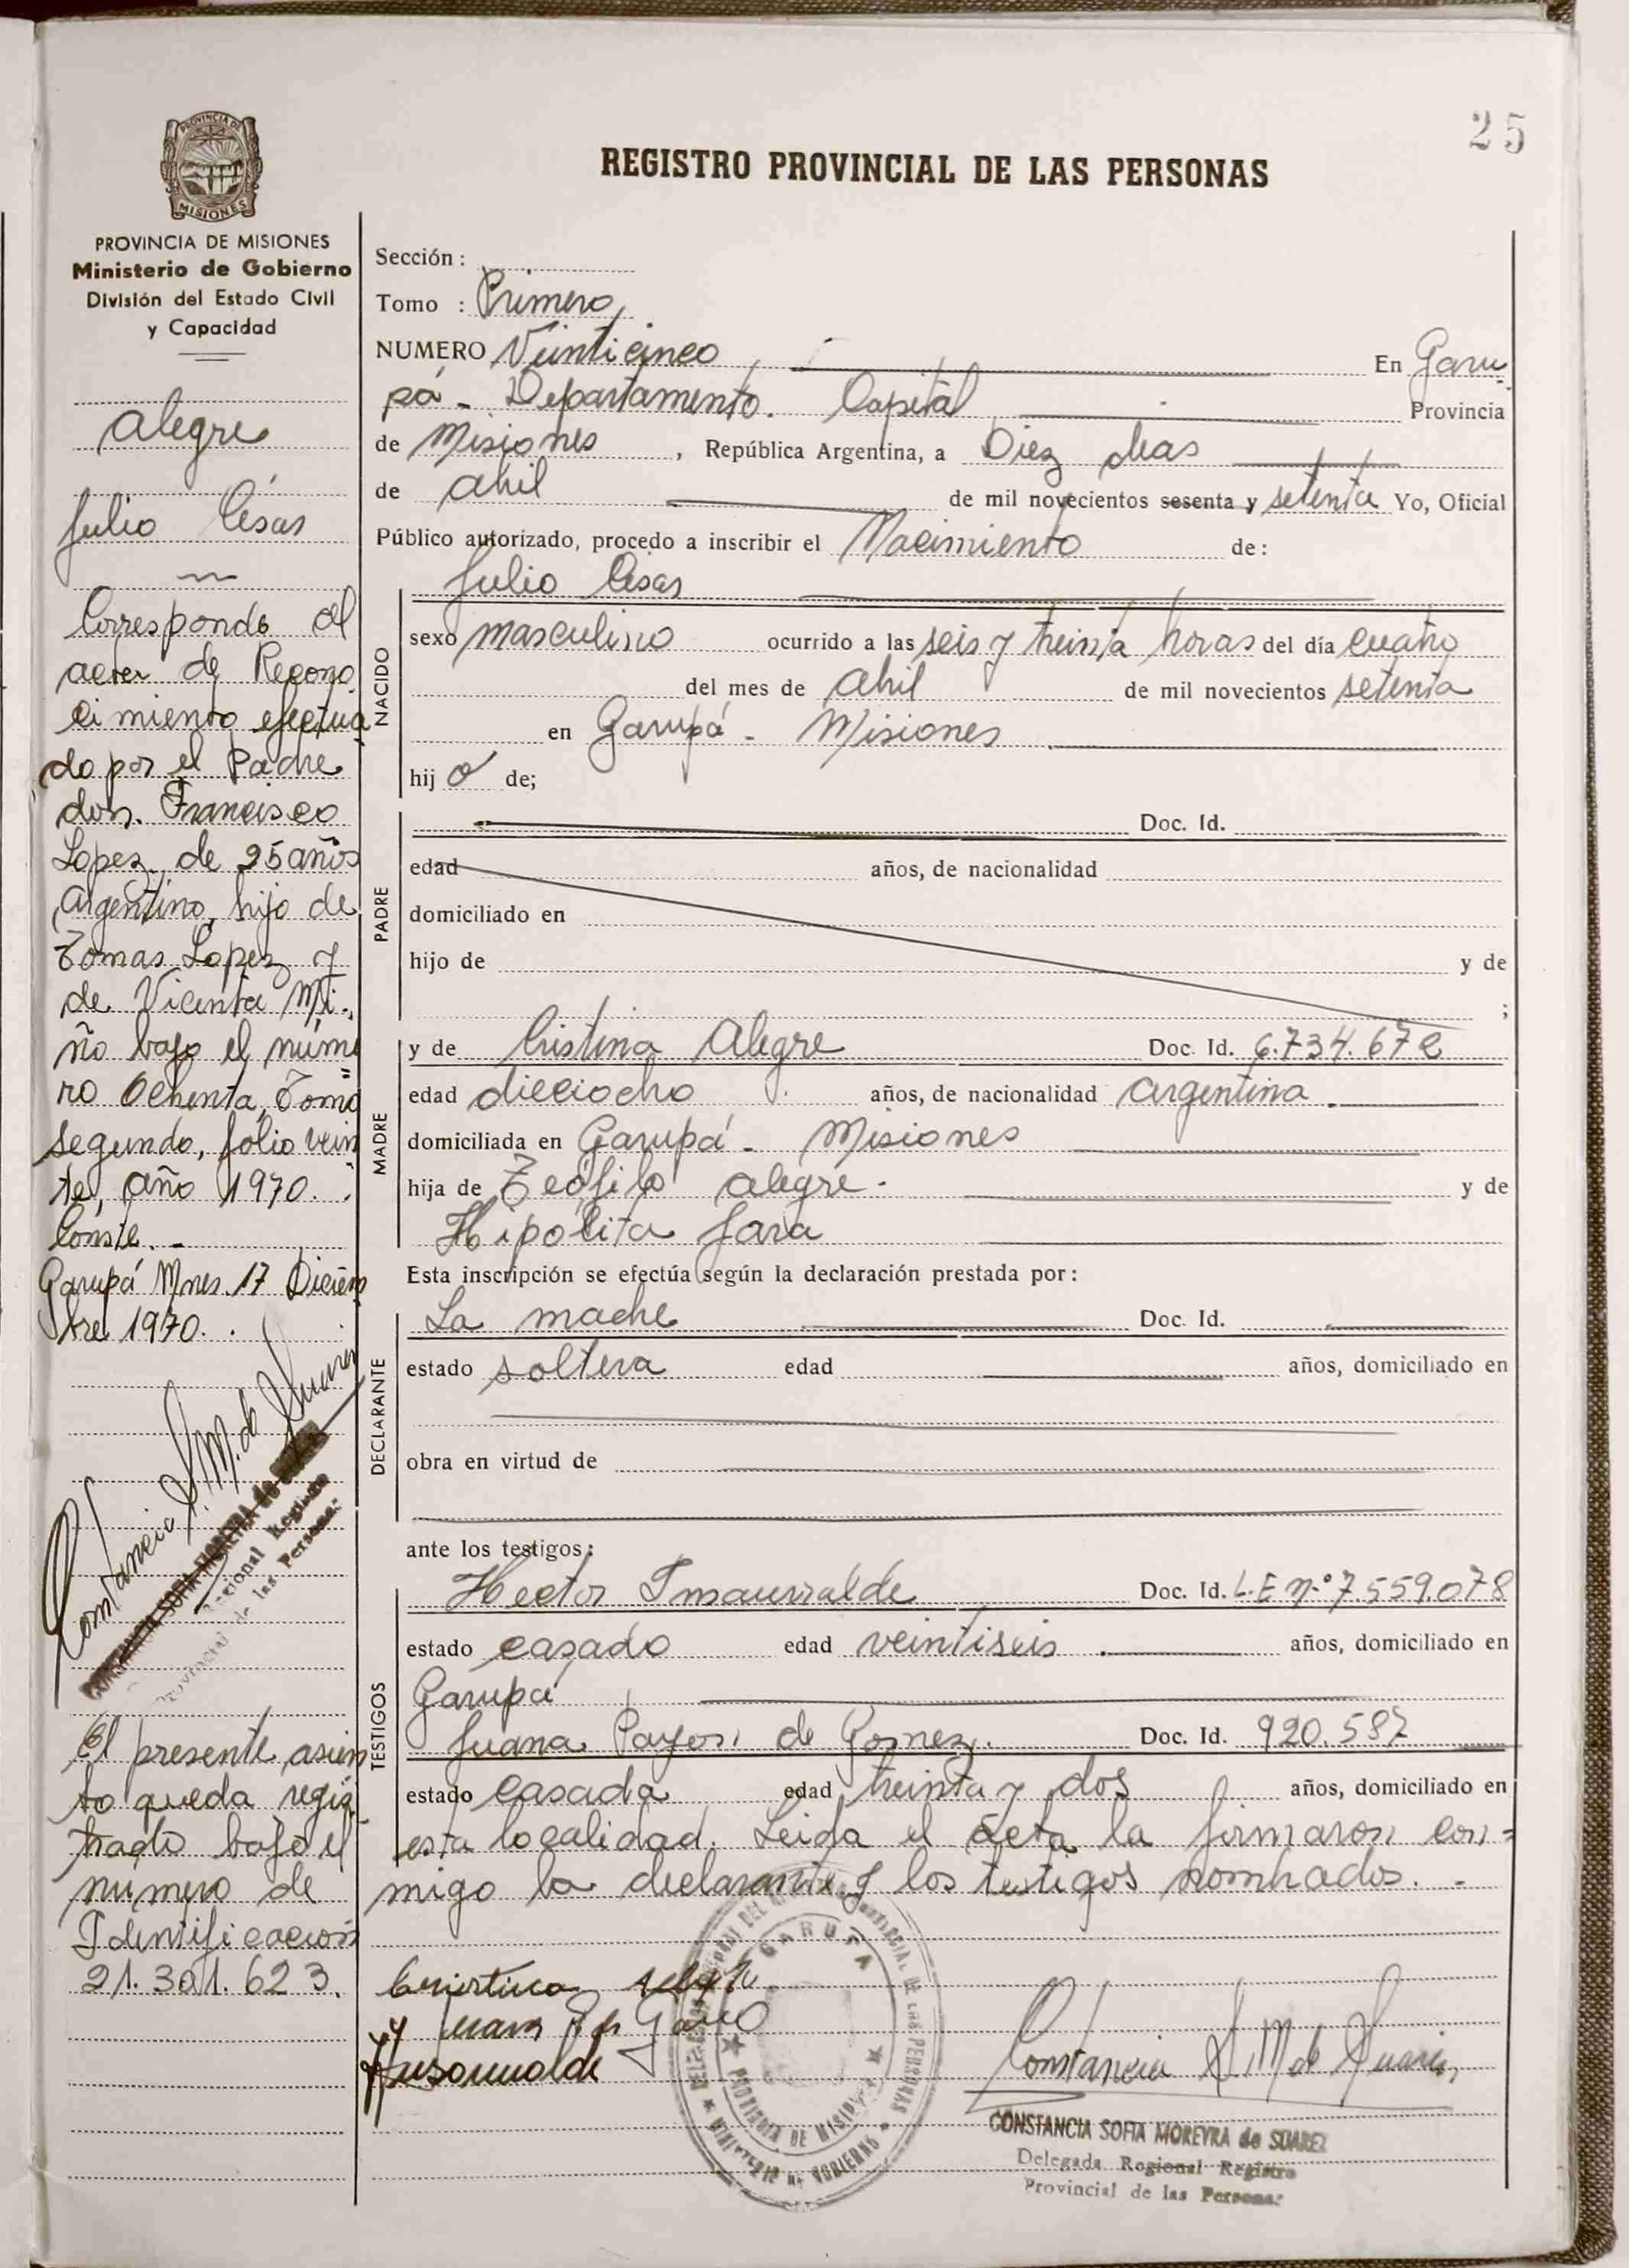 25
PROVINCIA DE
MISIONES
REGISTRO PROVINCIAL DE LAS PERSONAS
PROVINCIA DE MISIONES
Ministerio de Gobierno
División del Estado Civil
y Capacidad
Alegre
Julio César
Corresponde al
acta de Recono
cimiento efectua
do por el Padre
don. Francisco
Lopez, de 25 años
Argentino, hijo de
Tomas Lopez y
de Vicenta Mi-
ño bajo el núme
ro Ochenta, Tomo
segundo, folio vein
te, año 1970.
Conste. -
Garupá Mnes. 17 Diciem
bre 1970.
Constancia S. M. de Suarez
CONSTANCIA SOFIA MOREYRA de
Regional Registro
Provincial de las Personas
El presente asien
to queda regis
trado bajo el
numero de
Identificacion
21.301.623.
Sección:
Tomo : Primero
NUMERO Veinticinco En Garu-
pá - Departamento. Capital Provincia
de Misiones, República Argentina, a Diez dias
de Abril de mil novecientos sesenta y setenta Yo, Oficial
Público autorizado, procedo a inscribir el Nacimiento de:
Julio César
NACIDO
sexo masculino ocurrido a las seis y treinta horas del día cuatro
del mes de Abril de mil novecientos setenta
en Garupá - Misiones
hij o de;
PADRE
Doc. Id.
edad años, de nacionalidad
domiciliado en
hijo de y de
;
MADRE
y de Cristina Alegre Doc. Id. 6.734.672
edad dieciocho años, de nacionalidad Argentina.
domiciliada en Garupá - Misiones
hija de Teófilo Alegre. y de
Hipólita Jara
Esta inscripción se efectúa según la declaración prestada por:
DECLARANTE
La madre Doc. Id.
estado soltera edad años, domiciliado en
obra en virtud de
ante los testigos:
TESTIGOS
Hector Insaurralde Doc. Id. L.E nº 7.559.078
estado casado edad veintiseis. años, domiciliado en
Garupá
Juana de Gomez. Doc. Id. 920.587
estado casada edad treinta y dos años, domiciliado en
esta localidad. Leida el acta la firmaron con-
migo la declarante y los testigos nombrados. -
GARUPA
PROVINCIA DE MISIONES
MINISTERIO DE GOBIERNO
Constancia S. M. de Suarez
CONSTANCIA SOFIA MOREYRA de SUAREZ
Delegada Regional Registro
Provincial de las Personas